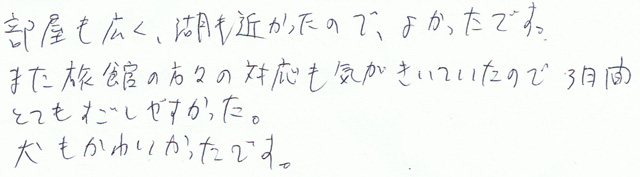 部屋も広く、湖も近かったので、よかったです。
また旅館の方々の対応も気がきいていたので3日間
とてもすごしやすかった。
犬もかわいかったです。